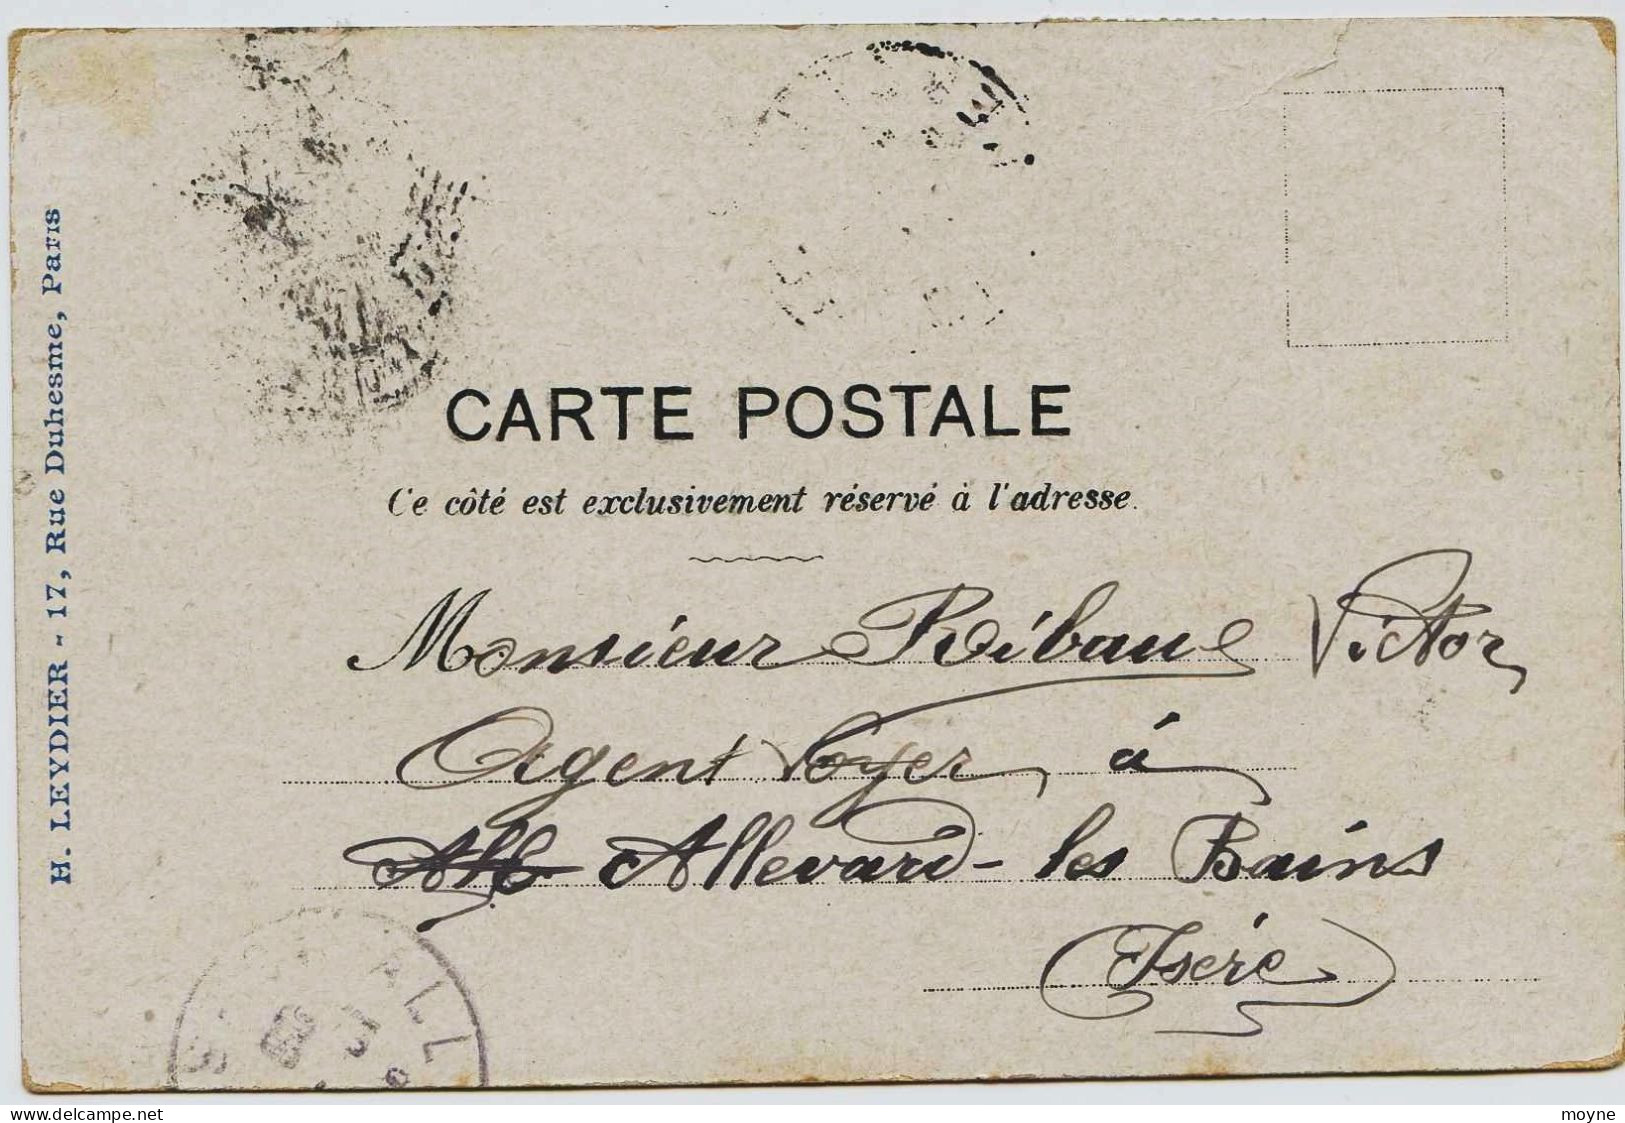 H. LEYDIER - 17, Rue Duhesme, Paris
CARTE POSTALE
Ce côté est exclusivement réservé à l'adresse.
Monsieur Ribaud Victor
Agent Voyer à
All Allevard-les Bains
Isère
ALL
moyne